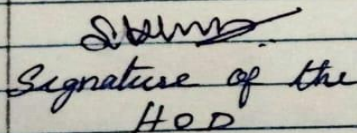 Signature of the
HOD